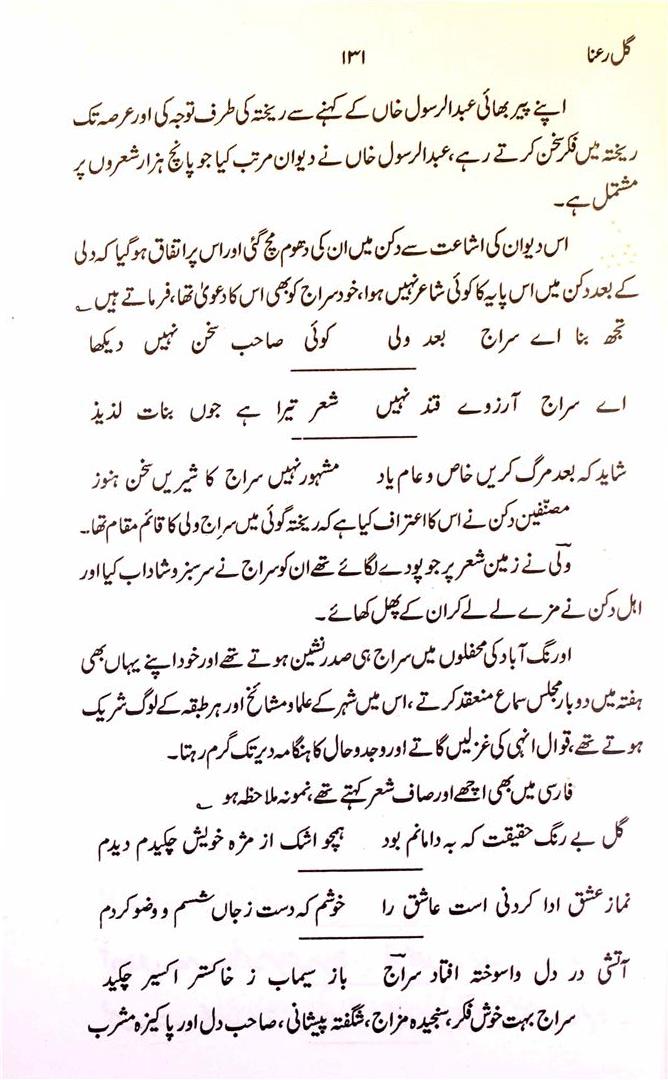 گل رعنا ۱۳۱
اپنے پیر بھائی عبدالرسول خاں کے کہنے سے ریختہ کی طرف توجہ کی اور عرصہ تک
ریختہ میں فکر سخن کرتے رہے، عبدالرسول خاں نے دیوان مرتب کیا جو پانچ ہزار شعروں پر
مشتمل ہے۔
اس دیوان کی اشاعت سے دکن میں ان کی دھوم مچ گئی اور اس پر اتفاق ہو گیا کہ ولی
کے بعد دکن میں اس پایہ کا کوئی شاعر نہیں ہوا، خود سراج کو بھی اس کا دعویٰ تھا، فرماتے ہیں ؎
تجھ بنا اے سراج بعد ولی کوئی صاحب سخن نہیں دیکھا
اے سراج آرزوے قند نہیں شعر تیرا ہے جوں بنات لذیذ
شاید کہ بعد مرگ کریں خاص و عام یاد مشہور نہیں سراج کا شیریں سخن ہنوز
مصنّفین دکن نے اس کا اعتراف کیا ہے کہ ریختہ گوئی میں سراج ولی کا قائم مقام تھا۔
ولی نے زمین شعر پر جو پودے لگائے تھے ان کو سراج نے سرسبز و شاداب کیا اور
اہل دکن نے مزے لے لے کر ان کے پھل کھائے۔
اورنگ آباد کی محفلوں میں سراج ہی صدر نشین ہوتے تھے اور خود اپنے یہاں بھی
ہفتہ میں دو بار مجلس سماع منعقد کرتے، اس میں شہر کے علما و مشائخ اور ہر طبقہ کے لوگ شریک
ہوتے تھے، قوال انہی کی غزلیں گاتے اور وجد و حال کا ہنگامہ دیر تک گرم رہتا۔
فارسی میں بھی اچھے اور صاف شعر کہتے تھے، نمونہ ملاحظہ ہو ؎
گل بے رنگ حقیقت کہ بہ دامانم بود ہمچو اشک از مژہ خویش چکیدم دیدم
نماز عشق ادا کردنی است عاشق را خوشم کہ دست ز جاں شستم و وضو کردم
آتشی در دل واسوختہ افتاد سراج باز سیماب ز خاکستر اکسیر چکید
سراج بہت خوش فکر، سنجیدہ مزاج، شگفتہ پیشانی، صاحب دل اور پاکیزہ مشرب